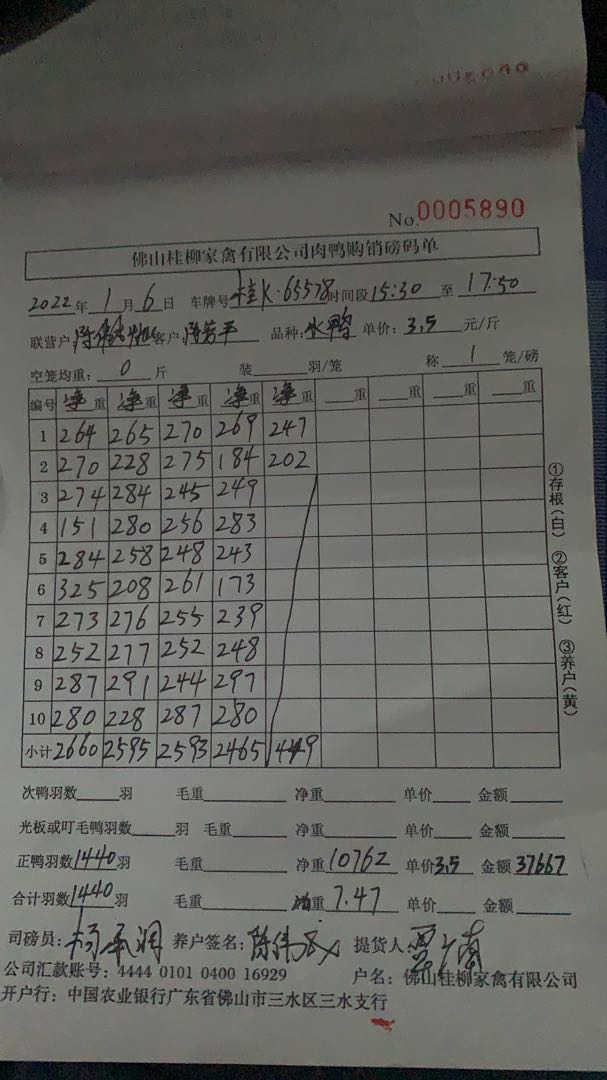 No.0005890
佛山桂柳家禽有限公司肉鸭购销磅码单
2022年1月6日 车牌号桂K·65578时间段15:30至17:50
联营户 陈伟 客户:陈芳平 品种:水鸭 单价:3.5元/斤
空笼均重:0斤 装 羽/笼 称1笼/磅
编号 净重 净重 净重 净重 净重 重 重 重 重
1 264 265 270 269 247
2 270 228 275 184 202
3 274 284 245 249
4 151 280 256 283
5 284 258 248 243
6 325 208 261 173
7 273 276 255 239
8 252 277 252 248
9 287 291 244 297
10 280 228 287 280
小计 2660 2595 2593 2465 449
①存根(白) ②客户(红) ③养户(黄)
次鸭羽数 羽 毛重 净重 单价 金额
光板或叮毛鸭羽数 羽 毛重 净重 单价 金额
正鸭羽数1440羽 毛重 净重10762 单价3.5 金额37667
合计羽数1440羽 毛重 重7.47 单价 金额
司磅员: 养户签名:陈伟 提货人:
公司汇款账号:4444 0101 0400 16929 户名:佛山桂柳家禽有限公司
开户行:中国农业银行广东省佛山市三水区三水支行